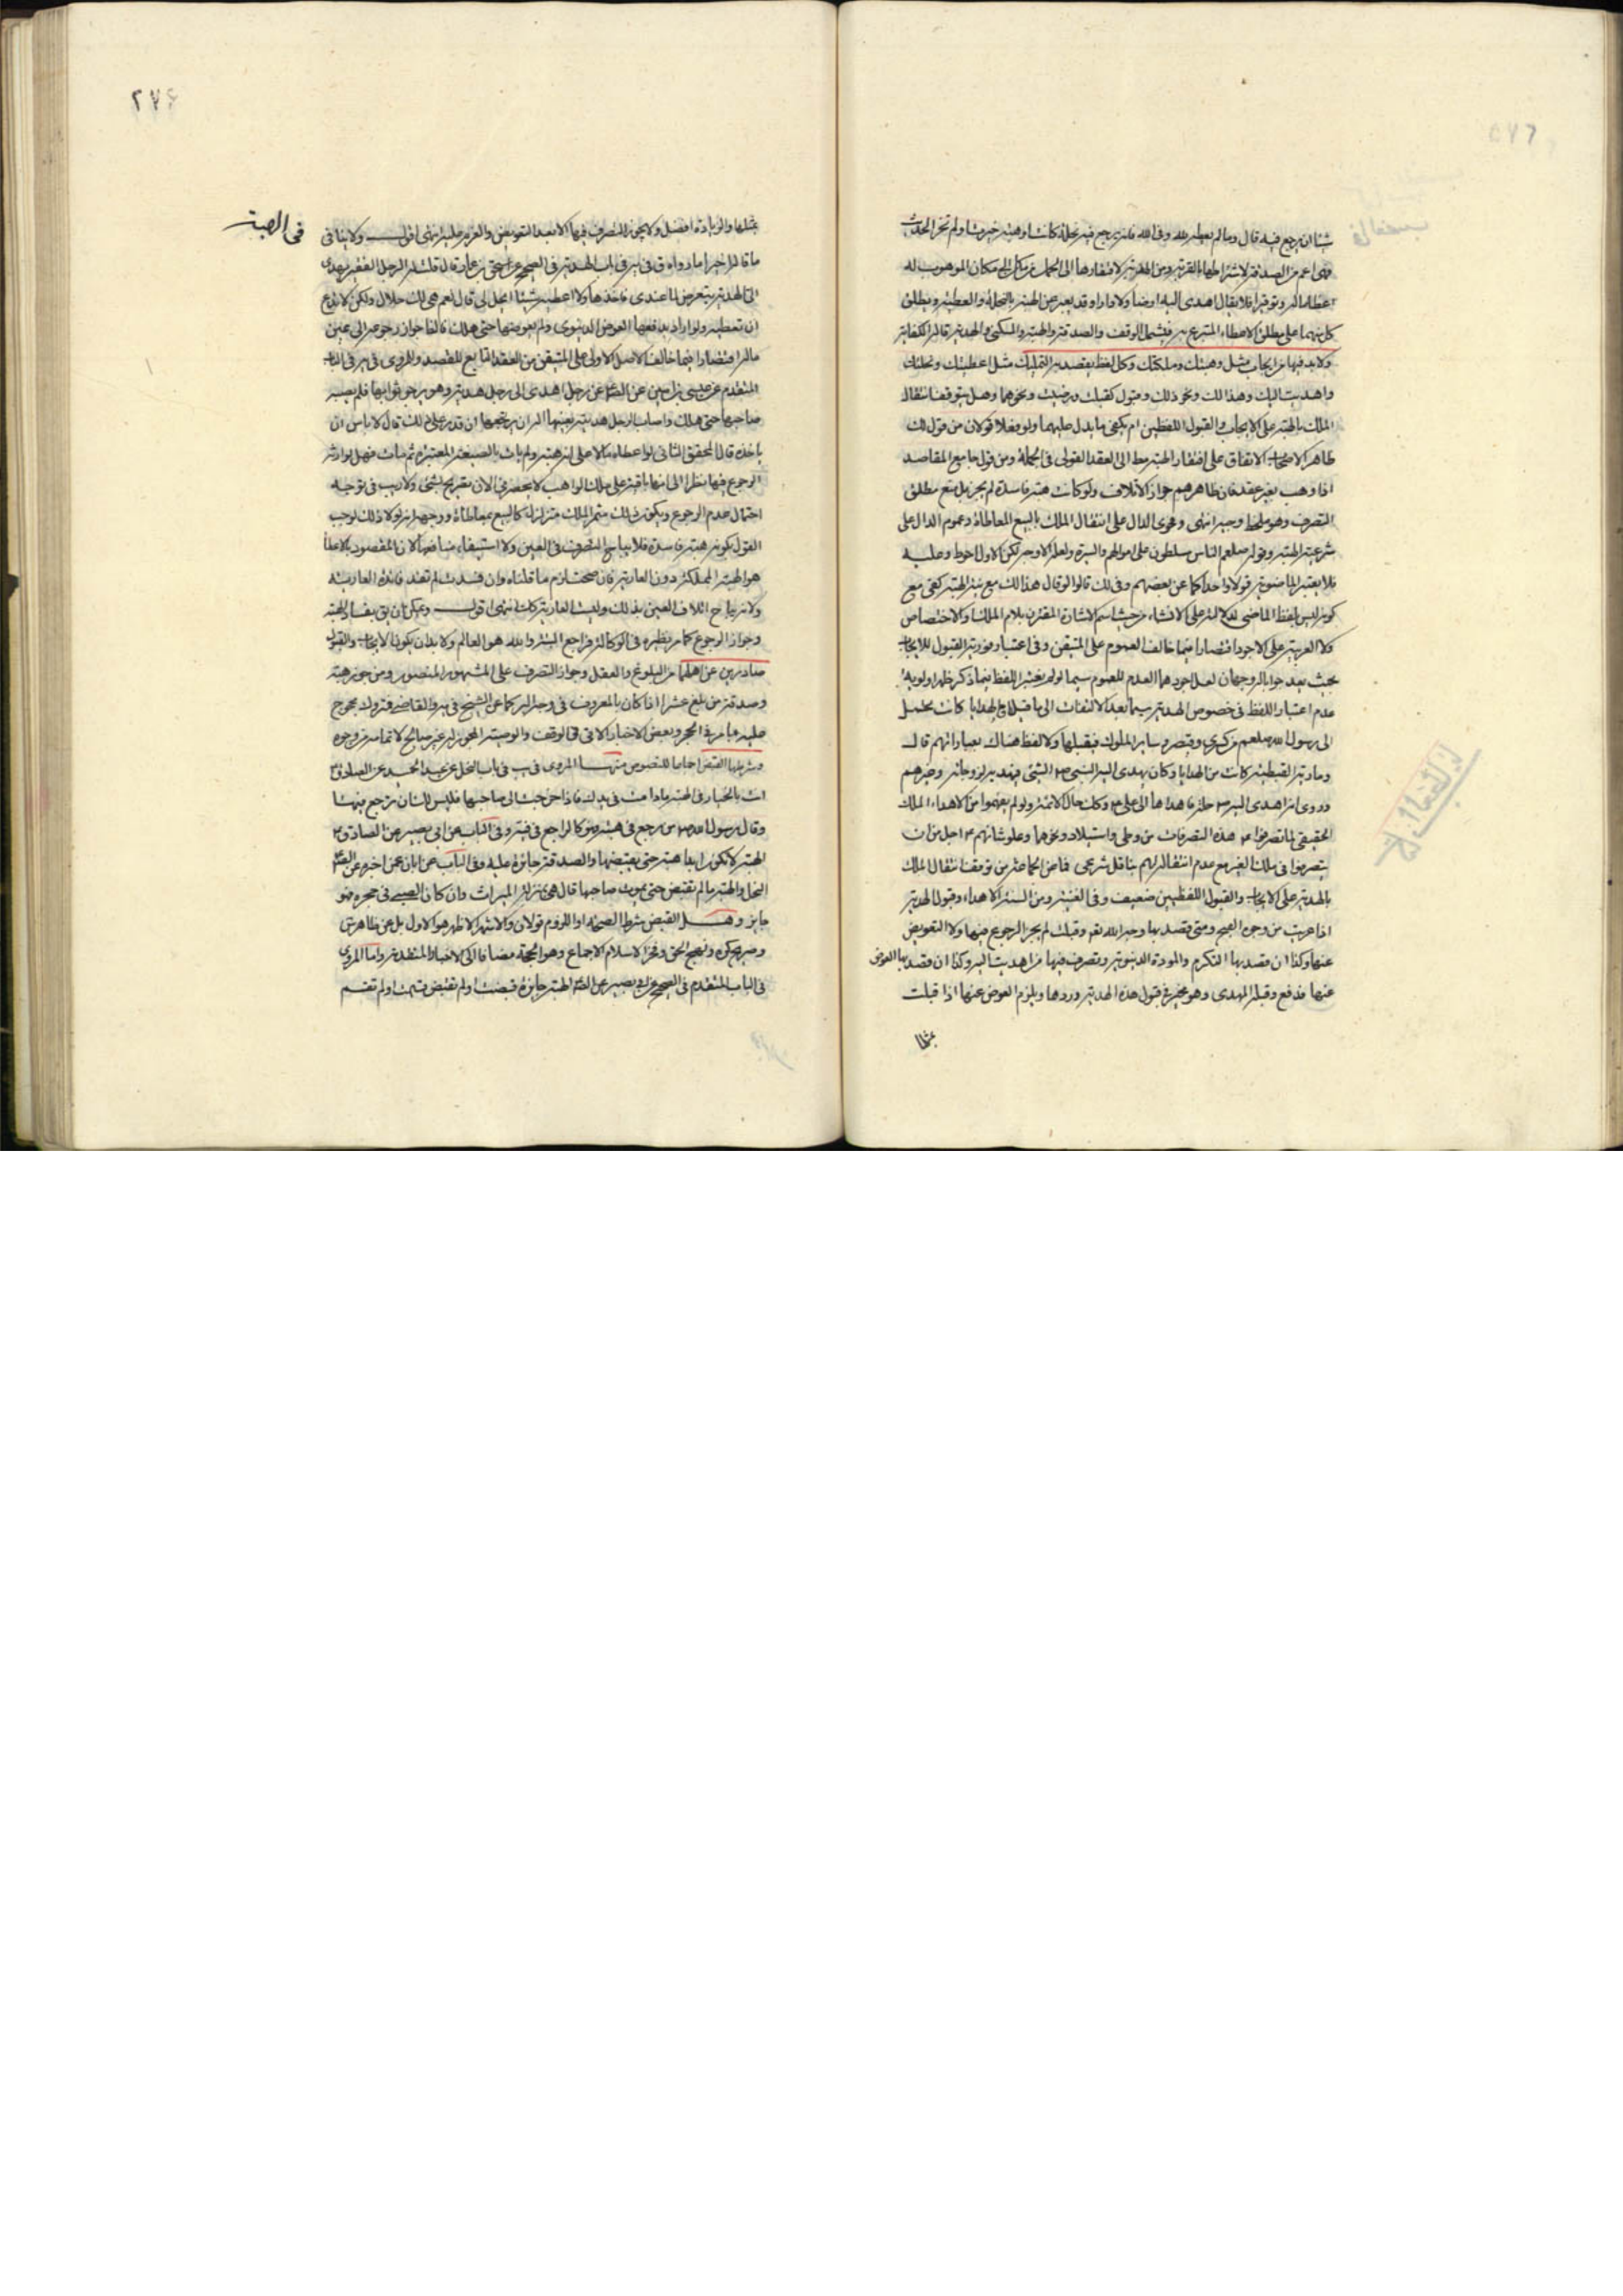 شيئا ان يرجع فيه قال وما لم يعطه لله وفى الله فانه يرجع فيه نحلة كانت او هبة حيزت او لم تحز الحديث
فهى اعم من الصدقة لاشتراطها بالقربة ومن الهدية لافتقارها الى الحمل من مكان الى مكان الموهوب له
اعظاما له وتوقيرا فلا يقال اهدى اليه ارضا ولا دارا وقد يعبر عن الهبة بالنحلة والعطية ويطلق
كل منهما على مطلق الاعطاء المتبرع به فيشمل الوقف والصدقة والهبة والسكنى والهدية قاله فى الكفاية
ولابد فيها من ايجاب مثل وهبتك وملكتك وكل لفظ يقصد به التمليك مثل اعطيتك ونحلتك
واهديت اليك وهذا لك ونحو ذلك وقبول كقبلت ورضيت ونحوهما وهل يتوقف انتقال
الملك بالهبة على الايجاب والقبول اللفظيين ام يكفى ما يدل عليهما ولو فعلا قولان من قول لك
ظاهر الاصحاب الاتفاق على افتقار الهبة مط الى العقد القولى فى الجملة ومن قول جامع المقاصد
اذا وهب بغير عقد فان ظاهرهم جواز الاتلاف ولو كانت هبة فاسدة لم يجز بل منع مطلق
التصرف وهو ملحظ وجيه انتهى وفحوى الدال على انتقال الملك بالبيع المعاطاة وعموم الدال على
شرعية الهبة وقوله صلعم الناس مسلطون على اموالهم والسيرة ولعله الاوجه لكن الاول احوط وعليه
فلا يعتبر الماضوية قولا واحدا كما عن بعضهم وفى لك قالوا لو قال هذا لك مع نية الهبة كفى مع
كونه ليس بلفظ الماضى لدلالته على الانشاء من حيث اسم الاشارة المقترن بلام الملك او الاختصاص
ولا العربية على الاجود اقتصارا فيما خالف العموم على المتيقن وفى اعتبار فورية القبول للايجاب
بحيث يعد جوابا له وجهان لعل اجودهما العدم للعموم سيما لو لم يعتبر اللفظ فيما ذكر ظهر اولوية
عدم اعتبار اللفظ فى خصوص الهدية سيما بعد الالتفات الى ما قيل ان الهدايا كانت يحمل
الى رسول الله صلعم من كسرى وقيصر وساير الملوك فيقبلها ولا لفظ هناك بعباراتهم قال
ومارية القبطية كانت من الهدايا وكان يهدى اليه النبى ص الشئ فيهديه لزوجاته وغيرهم
وروى انه اهدى اليه ص حلة فاهداها الى على ع وكك حال الائمة ولو لم يفهموا من الاهداء الملك
الحقيقى لما تصرفوا ع هذه التصرفات من وطى واستيلاد ونحوهما وعلو شانهم ع اجل من ان
يتصرفوا فى ملك الغير مع عدم انتقاله اليهم بناقل شرعى فما عن الجماعة من توقف انتقال الملك
بالهدية على الايجاب والقبول اللفظيين ضعيف وفى الغنية ومن السنة الاهداء وقبول الهدية
اذا عريت من وجوه القبح ومتى قصد بها وجه الله تعه وقبلت لم يجز الرجوع فيها ولا التعويض
عنها وكذا ان قصد بها التكرم والمودة الدنيوية وتصرف فيها من اهديت اليه وكذا ان قصد بها العوض
عنها فدفع وقبله المهدى وهو مخير فى قبول هذه الهدية وردها ويلزم العوض عنها اذا قبلت
بمثلها
٢٧۶
فى الهبة
بمثلها والزيادة افضل ولا يجوز التصرف فيها الا بعد التعويض والعزم عليه انتهى اقول ولا ينافى
ما قاله اخيرا ما رواه ق فى يه فى باب الهدية فى الصحيح عن اسحق بن عمار قال قلت له الرجل الفقير يهدى
الى الهدية يتعرض لما عندى فاخذها ولا اعطيه شيئا ايحل لى قال نعم هى لك حلال ولكن لا تدع
ان تعطيه ولو اراد بدافعها العوض الدنيوى ولم يعوضها حتى هلك فالظ جواز رجوعه الى عين
ماله اقتصارا فيما خالف الاصل الاولى على المتيقن من العقد التابع للقصد وللمروى فى يه فى الباب
المتقدم عن عيسى بن اعين عن الصا ع عن رجل اهدى الى رجل هدية وهو يرجو ثوابها فلم يصبه
صاحبها حتى هلك واصاب الرجل هديته بعينها اله ان يرتجعها ان قدر على ذلك قال لا باس ان
ياخذه قال المحقق الثانى لو اعطاه مالا على انه هبة ولم يات بالصيغة المعتبرة ثم مات فهل لوارثه
الرجوع فيها نظرا الى انها باقية على ملك الواهب لا يحضرنى الان تصريح بشئ ولا ريب فى توجه
احتمال عدم الرجوع ويكون ذلك مثمرا لملك متزلزل كالبيع بمعاطاة ووجهه انه لولا ذلك لوجب
القول بكونه هبة فاسدة فلا يباح التصرف فى العين ولا استيفاء منافعها لان المقصود بالاعطاء
هو الهبة المملكة دون العارية فان صحت لزم ما قلناه وان فسدت لم تفد فائدة العارية
ولانه يباح اتلاف العين بذلك وليست العارية كك انتهى اقول ويمكن ان يق بفساد الهبة
وجواز الرجوع كما مر نظيره فى الوكالة فراجع اليه والله هو العالم ولابد ان يكون الايجاب والقبول
صادرين عن اهلهما من البلوغ والعقل وجواز التصرف على المشهور المنصور ومن جوز هبة
وصدقة من بلغ عشرا اذا كان بالمعروف فى وجوه البر كما عن الشيخ فى يه والقاضى فتروك محجوج
عليه بما مر فى الحجر وبعض الاخبار الاتى فى الوقف والوصية المجوز له غير صالح لاتمامه من وجوه
وشرطها القبض اجماعا للنصوص منها المروى فى يب فى باب النحل عن عبد الحميد عن الصادق ع
انت بالخيار فى الهبة ما دامت فى يدك فاذا خرجت الى صاحبها فليس لك ان ترجع فيها
وقال رسول الله ص من رجع فى هبته فهو كالراجع فى قيئه وفى الباب عن ابى بصير عن الصادق ع
الهبة لا تكون ابدا هبة حتى يقبضها والصدقة جايزة عليه وفى الباب عن ابان عمن اخبره عن الصا ع
النحل والهبة ما لم تقبض حتى يموت صاحبها قال هى بمنزلة الميراث وان كان الصبى فى حجره فهو
جايز وهل القبض شرط الصحة او اللزوم قولان والاشهر الاظهر هو الاول بل عن ظاهر س
وصريح كره ونهج الحق وفخر الاسلام الاجماع وهو الحجة مضافا الى الاخبار المتقدمة واما المروى
فى الباب المتقدم فى الصحيح عن ابى بصير عن الصا ع الهبة جايزة قبضت او لم تقبض قسمت او لم تقسم